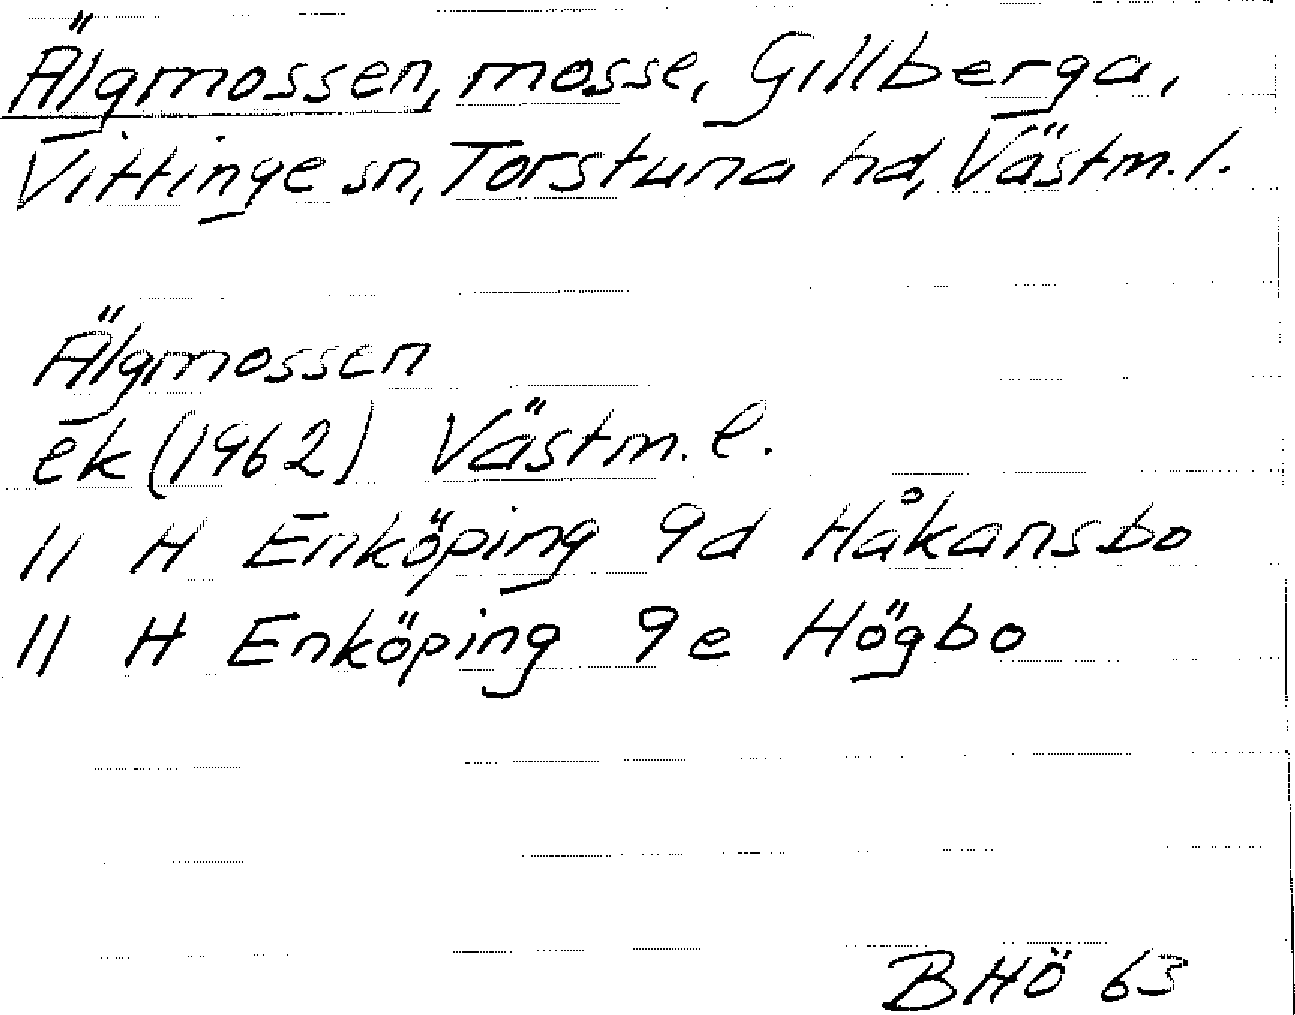 Älgmossen, mosse, Gillberga,
Vittinge sn, Torstuna hd, Västm. l.
Älgmossen
ek (1962) Västm. l.
11 H Enköping 9d Håkansbo
11 H Enköping 9e Högbo
BHÖ 63